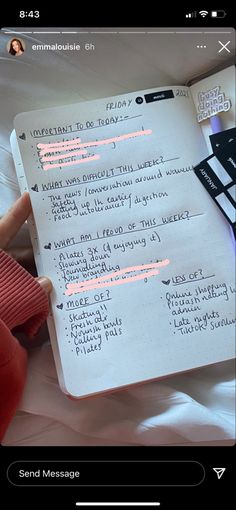 8:43
emmalouisie 6h
FRIDAY
2021
busy
doing
nothing
IMPORTANT TO DO TODAY:-
JANUARY
WHAT WAS DIFFICULT THIS WEEK?
The news / conversation around women's
safety
Getting up earlier
Food intolerances / digestion
WHAT AM I PROUD OF THIS WEEK?
Pilates 3x (& enjoying it)
Slowing down
Journalling
New branding
MORE OF?
Skating!!
Fresh air
Nourish bowls
Calling pals
Pilates
LESS OF?
Online shopping
admin
Late nights
TikTok
Send Message